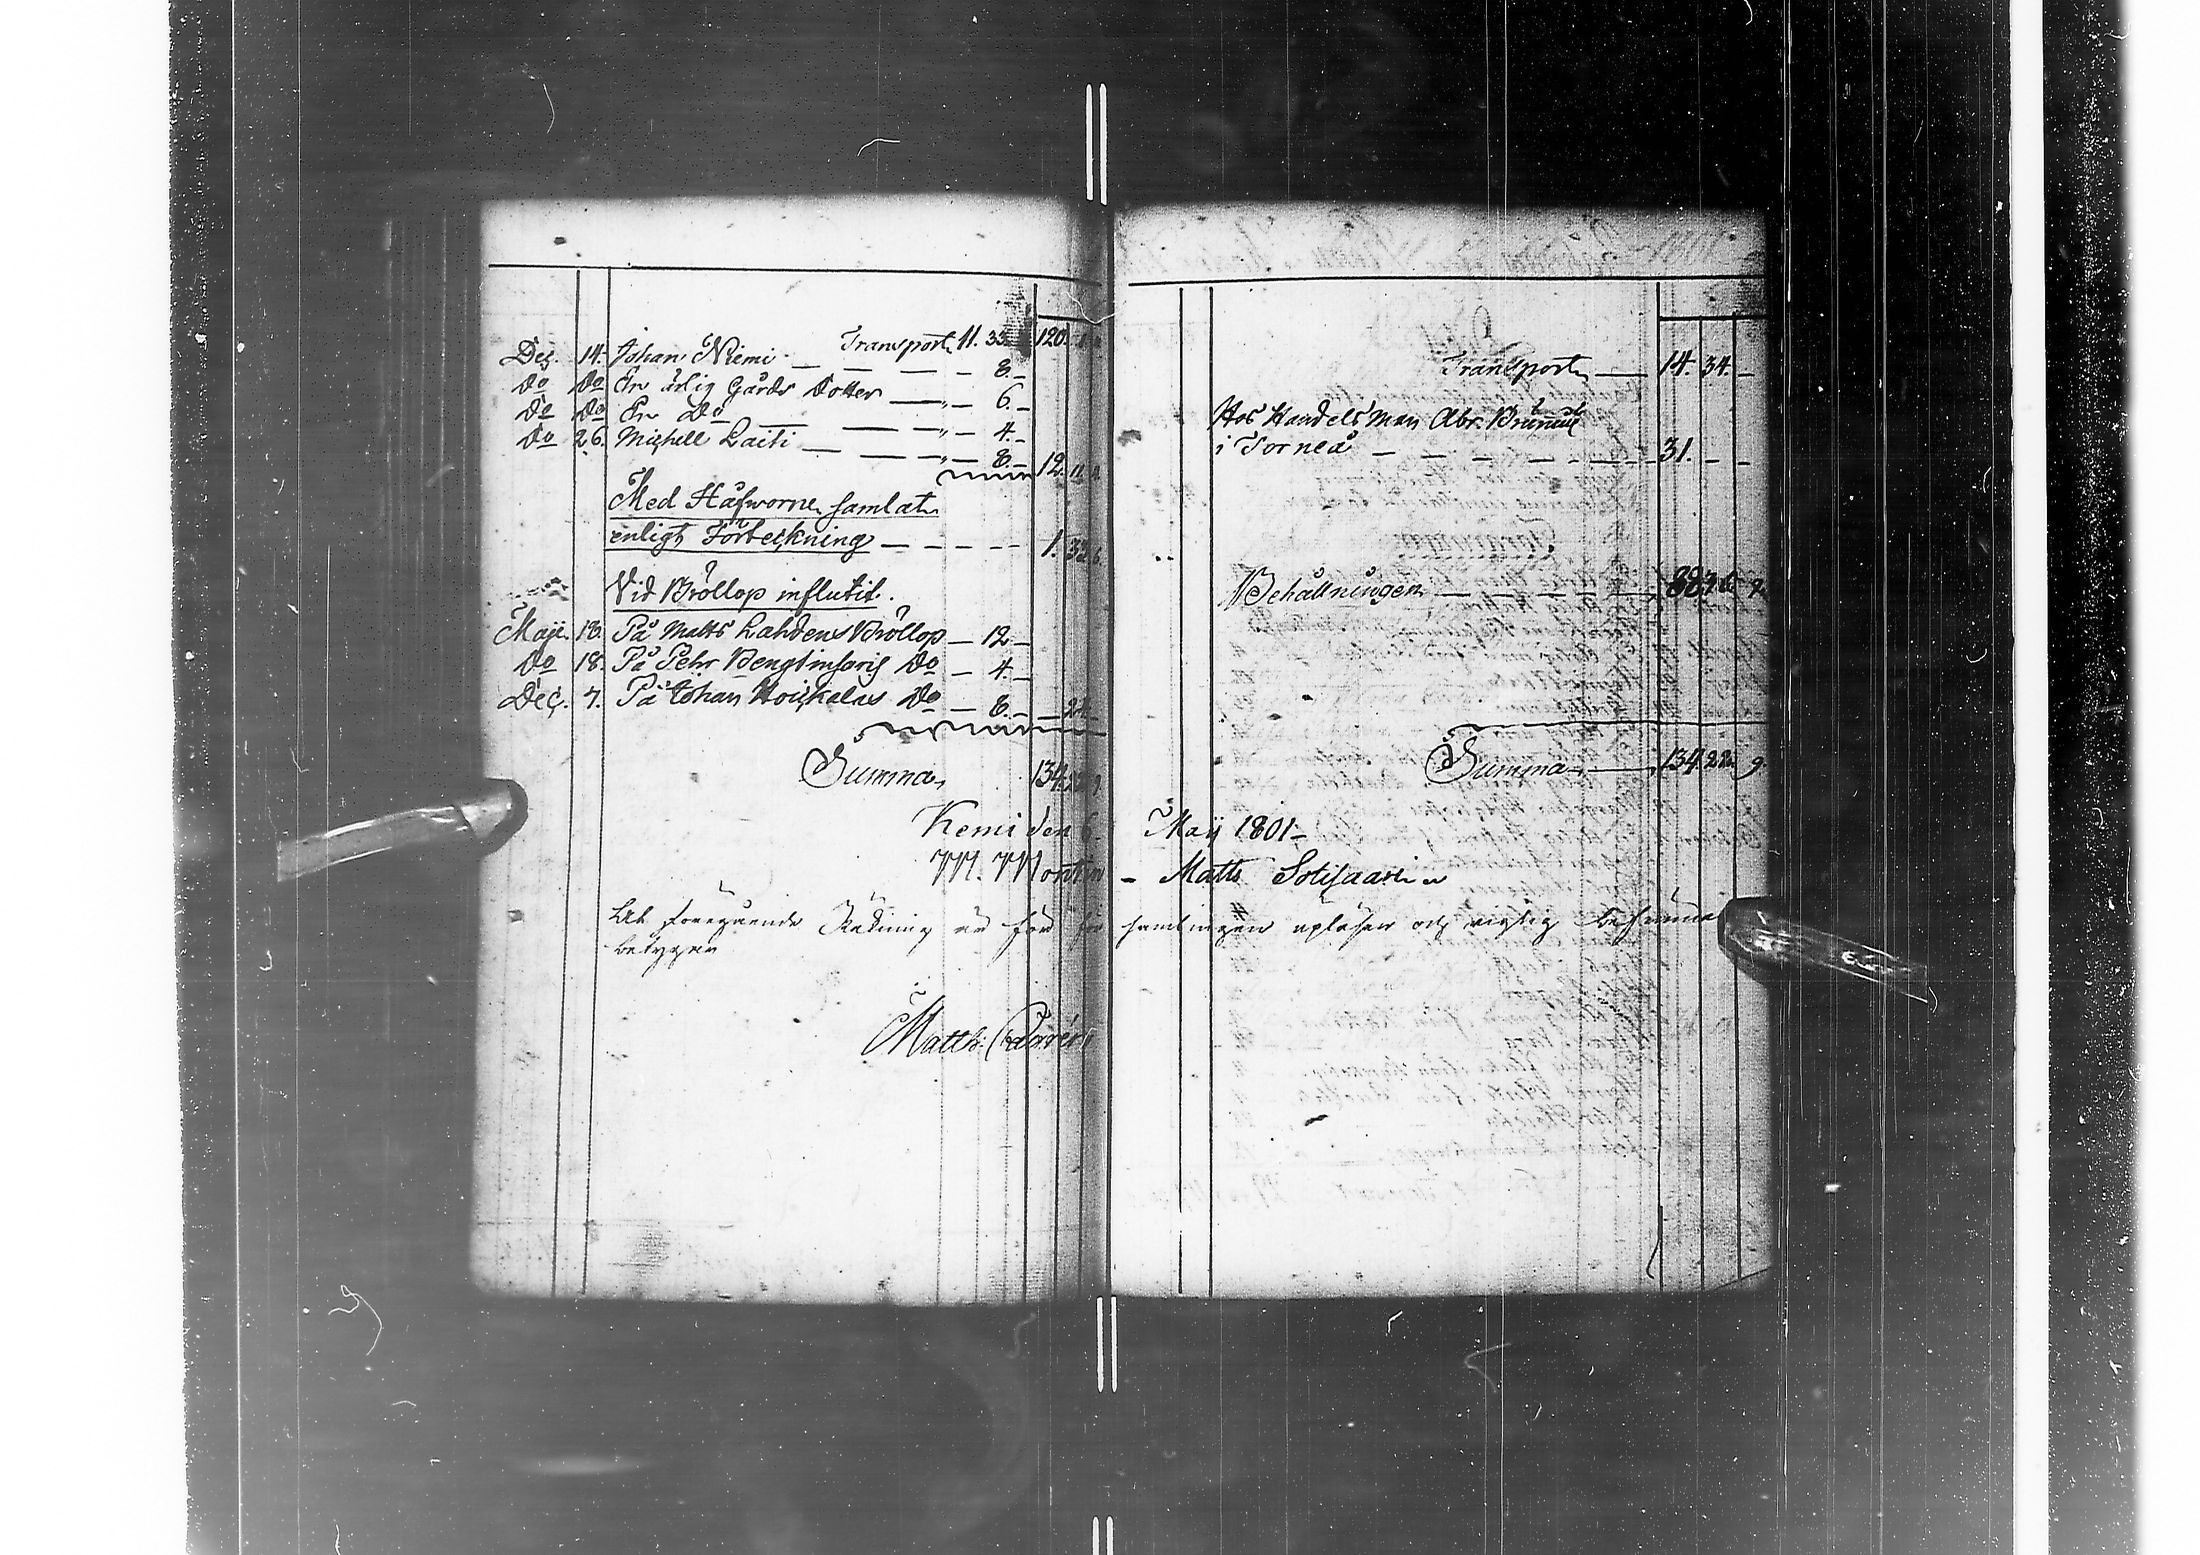 Transport 11. 33. 120.
Dec. 14. Johan Niemi — — — 8.—
Do Do En ärlig Gårds Dotter — „ — 6.—
Do Do En Do — — „ — 4.—
Do 26. Michell Laiti — — „ — 8.— 12. 11.
Med Håfworne samlat
enligt Förteckning — — — — 1. 32 6.
Vid Bröllop influtit.
Maji. 18. På Matts Lahdens Bröllop — 12 —
Do 18. På Pehr Do — 4.—
Dec. 7. På Johan Do — 8.— — 24.
Summa 134.
Transport — 14. 34. —
Hos Handelsman Abr.
i Torneå — — — — 31. — —
Behållningen — — —
Summa — 134. 22. 9.
Kemi den 6 Maij 1801 —
M. — Matts
At föregående Räkning är för församlingen upläsen och richtig befunnen
betygar
Matth.